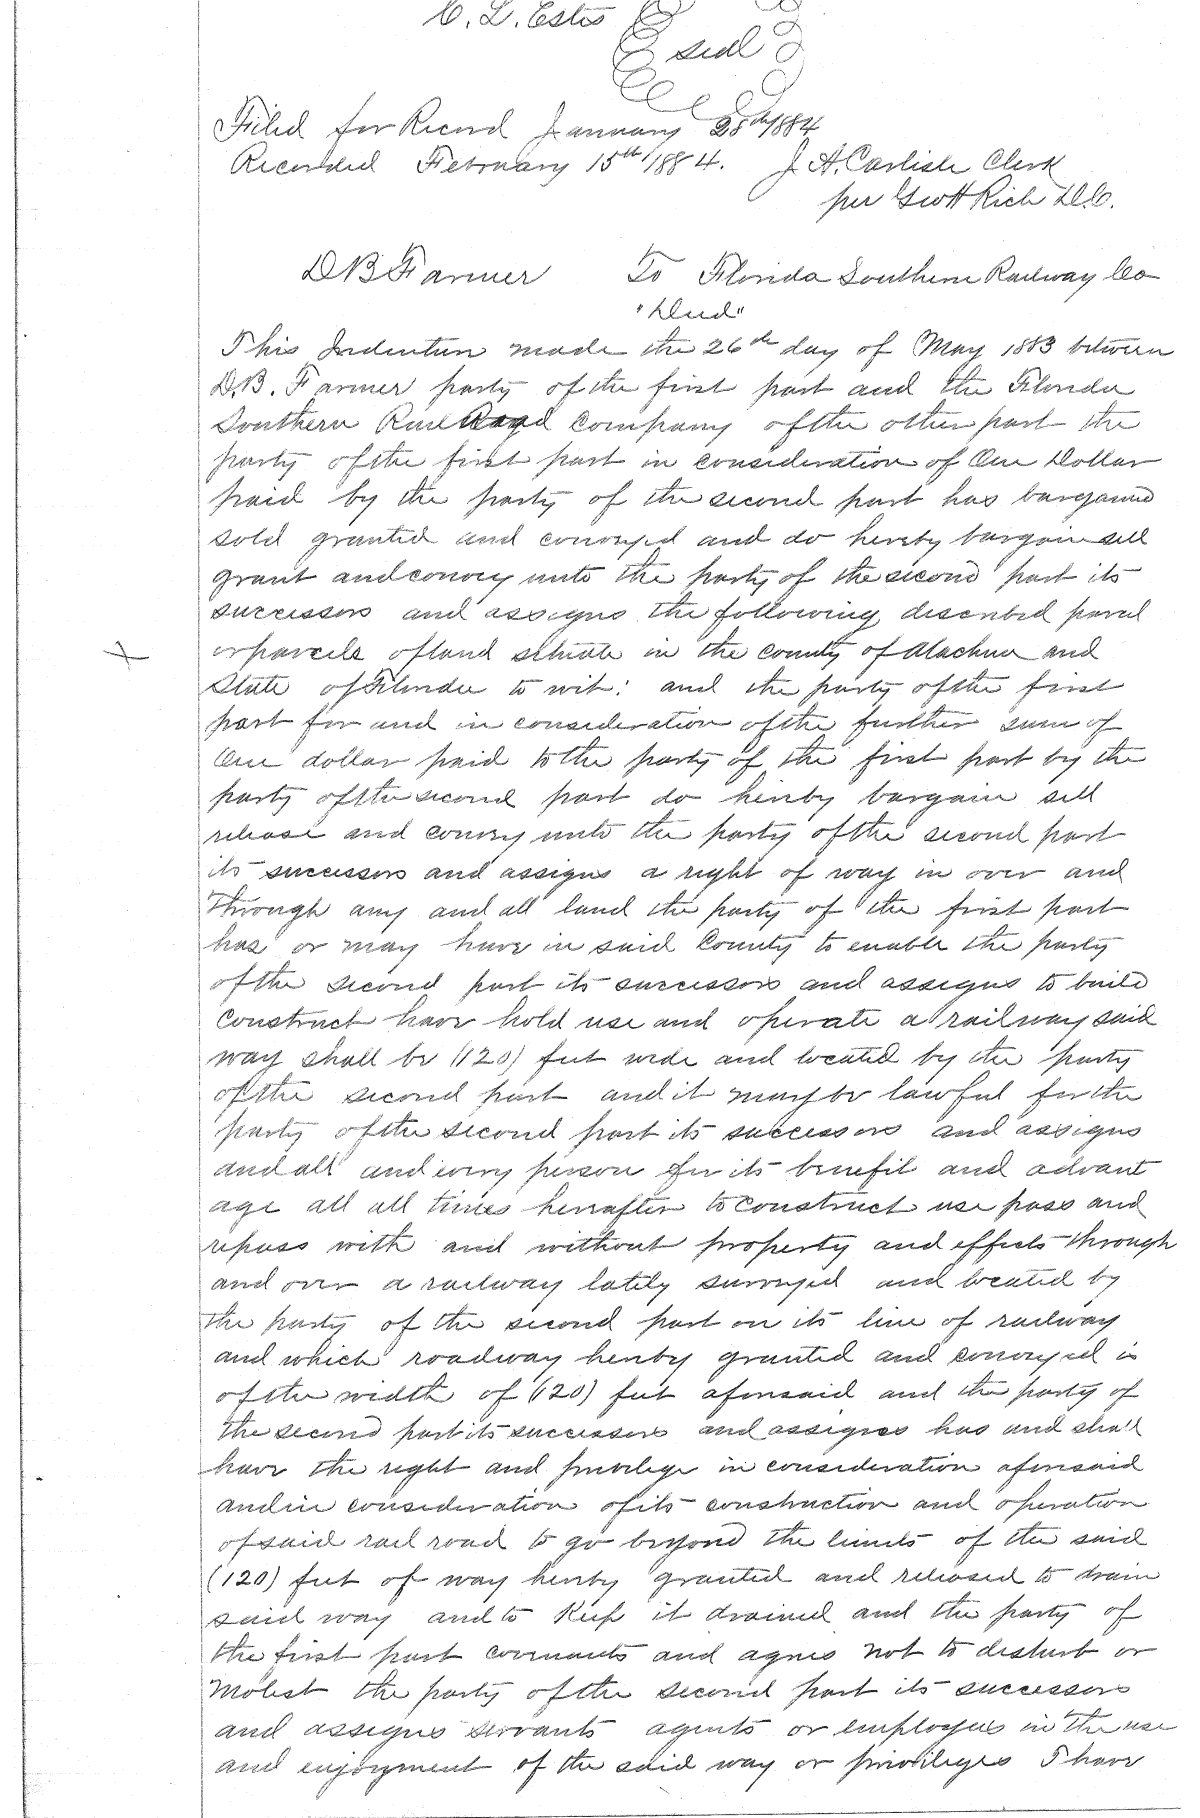 C. L. Estes
seal
Filed for Record January 28th/1884
Recorded February 15th/1884. J. A. Carlisle Clerk
per Scott Rich D.C.
D B Farmer To Florida Southern Railway Co
"Deed"
This Indenture made the 26th day of May 1883 between
D.B. Farmer party of the first part and the Florida
Southern Rail Road company of the other part the
party of the first part in consideration of One Dollar
paid by the party of the second part has bargained
sold granted and conveyed and do hereby bargain sell
grant and convey unto the party of the second part its
successors and assigns the following described parcel
or parcels of land situate in the county of Alachua and
State of Florida to wit: and the party of the first
part for and in consideration of the further sum of
One dollar paid to the party of the first part by the
party of the second part do hereby bargain sell
release and convey unto the party of the second part
its successors and assigns a right of way in over and
through any and all land the party of the first part
has or may have in said County to enable the party
of the second part its successors and assigns to build
construct have hold use and operate a railway said
way shall be (120) feet wide and located by the party
of the second part and it may be lawful for the
party of the second part its successors and assigns
and all and every person for its benefit and advant
age all all times hereafter to construct use pass and
repass with and without property and effects through
and over a railway lately surveyed and located by
the party of the second part on its line of railway
and which roadway hereby granted and conveyed is
of the width of (120) feet aforesaid and the party of
the second part its successors and assigns has and shall
have the right and privilege in consideration aforesaid
and in consideration of its construction and operation
of said rail road to go beyond the limits of the said
(120) feet of way hereby granted and released to drain
said way and to keep it drained and the party of
the first part covenants and agrees not to disturb or
Molest the party of the second part its successors
and assigns servants agents or employees in the use
and enjoyment of the said way or privileges I have